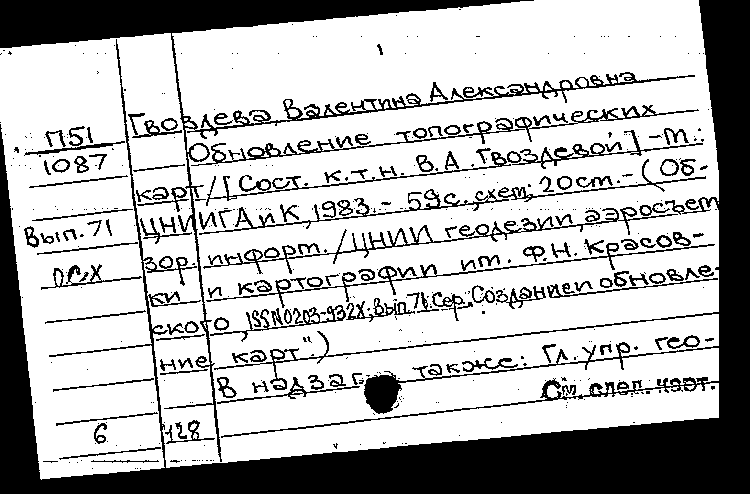 1
Гвоздева, Валентина Александровна
П51
1087
Обновление топографических
карт/[Сост. к.т.н. В.А. Гвоздевой] -М.:
Вып. 71
ЦНИИГАиК, 1983.- 59с., схем; 20см.- (Об-
зор. информ./ЦНИИ геодезии, аэросъем
ки и картографии им. Ф.Н. Красов-
ского, ISSN0203-932X; Вып. 71. Сер.: Создание и обновле-
ние карт".)
В надзаг также: Гл. упр. гео-
См. след. карт.
6 128